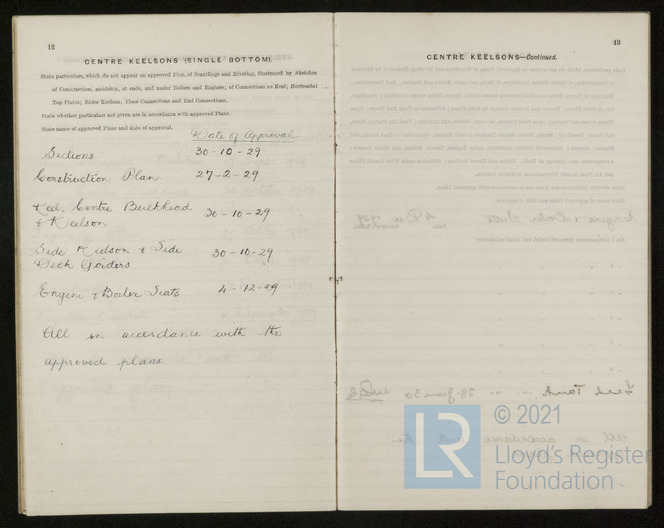 12
CENTRE KEELSONS (SINGLE BOTTOM)
State particulars, which do not appear on approved Plan, of Scantlings and Riveting, illustrated by Sketches
of Construction, amidship, at ends, and under Boilers and Engines; of Connections to Keel; Horizontal
Top Plates; Rider Keelson; Floor Connections and End Connections.
State whether particulars not given are in accordance with approved Plans.
State name of approved Plans and date of approval.
Date of Approval
Sections 30-10-29
Construction Plan 27-2-29
Keel, Centre Bulkhead 30-10-29
& Keelson
Side Keelson & Side 30-10-29
Deck Girders
Engine & Boiler Seats 4-12-29
All in accordance with the
approved plans
13
CENTRE KEELSONS—Continued.
LR
© 2021
Lloyd's Register
Foundation